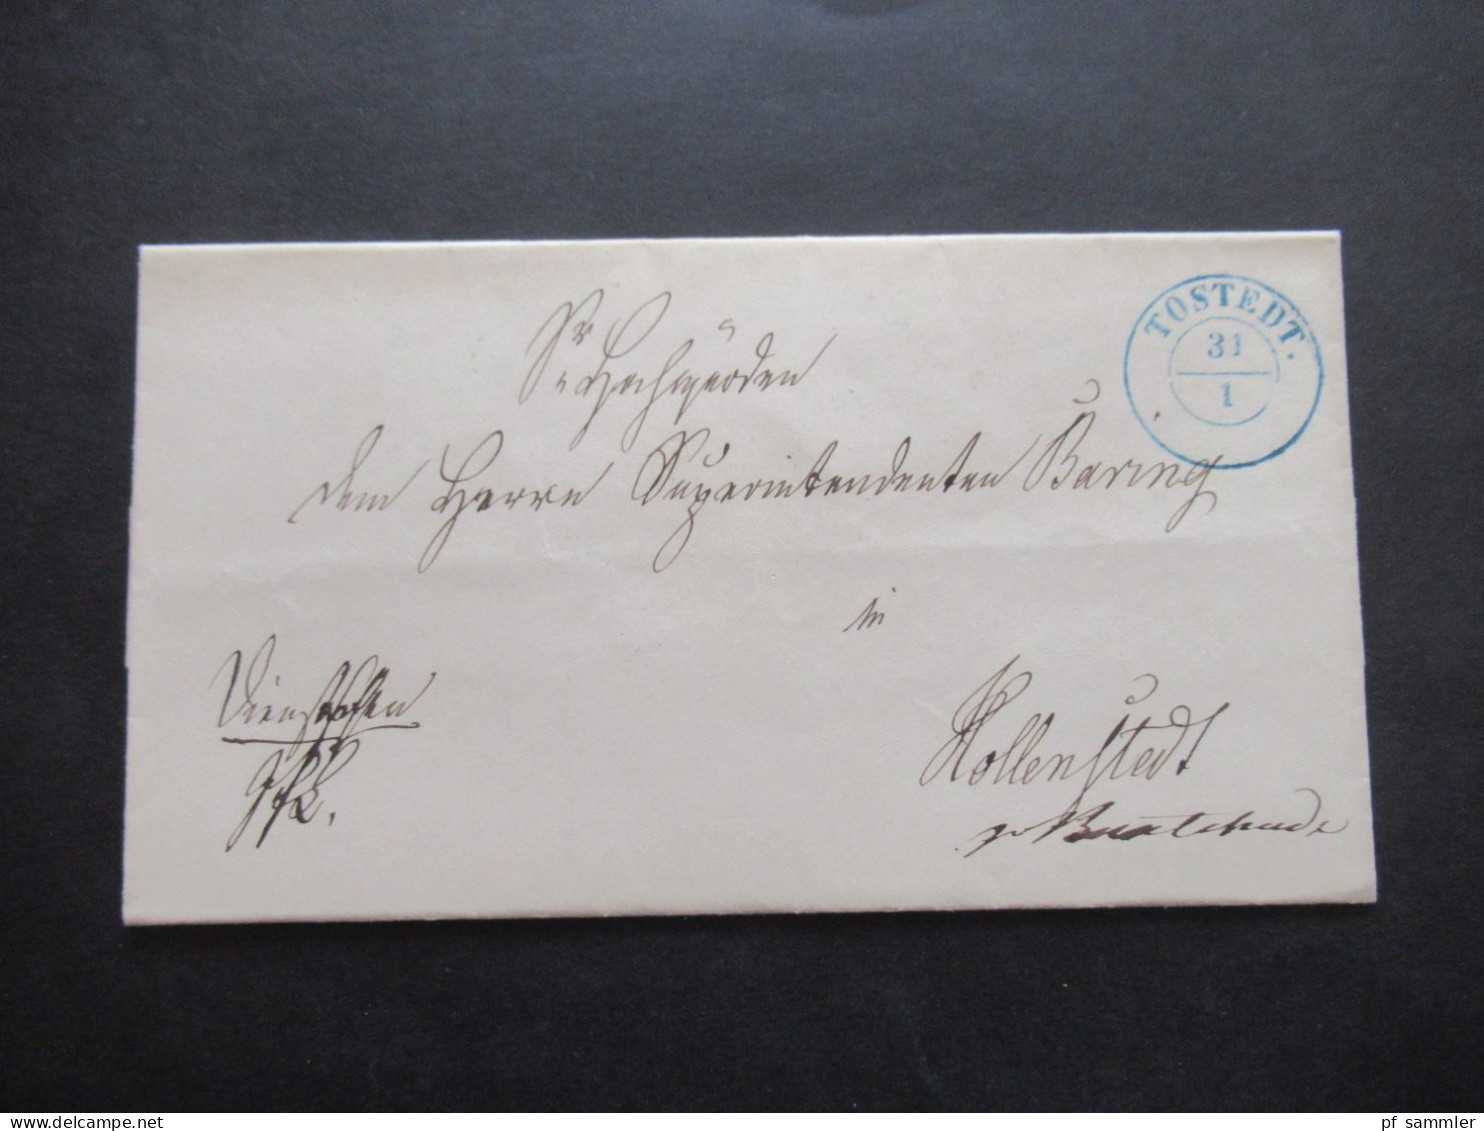 TOSTEDT.
31
1
Sr Hochwürden
dem Herrn Superintendenten Baring
in
Dienstsachen
Hollenstedt
pr Buxtehude
© www.delcampe.net
pf sammler